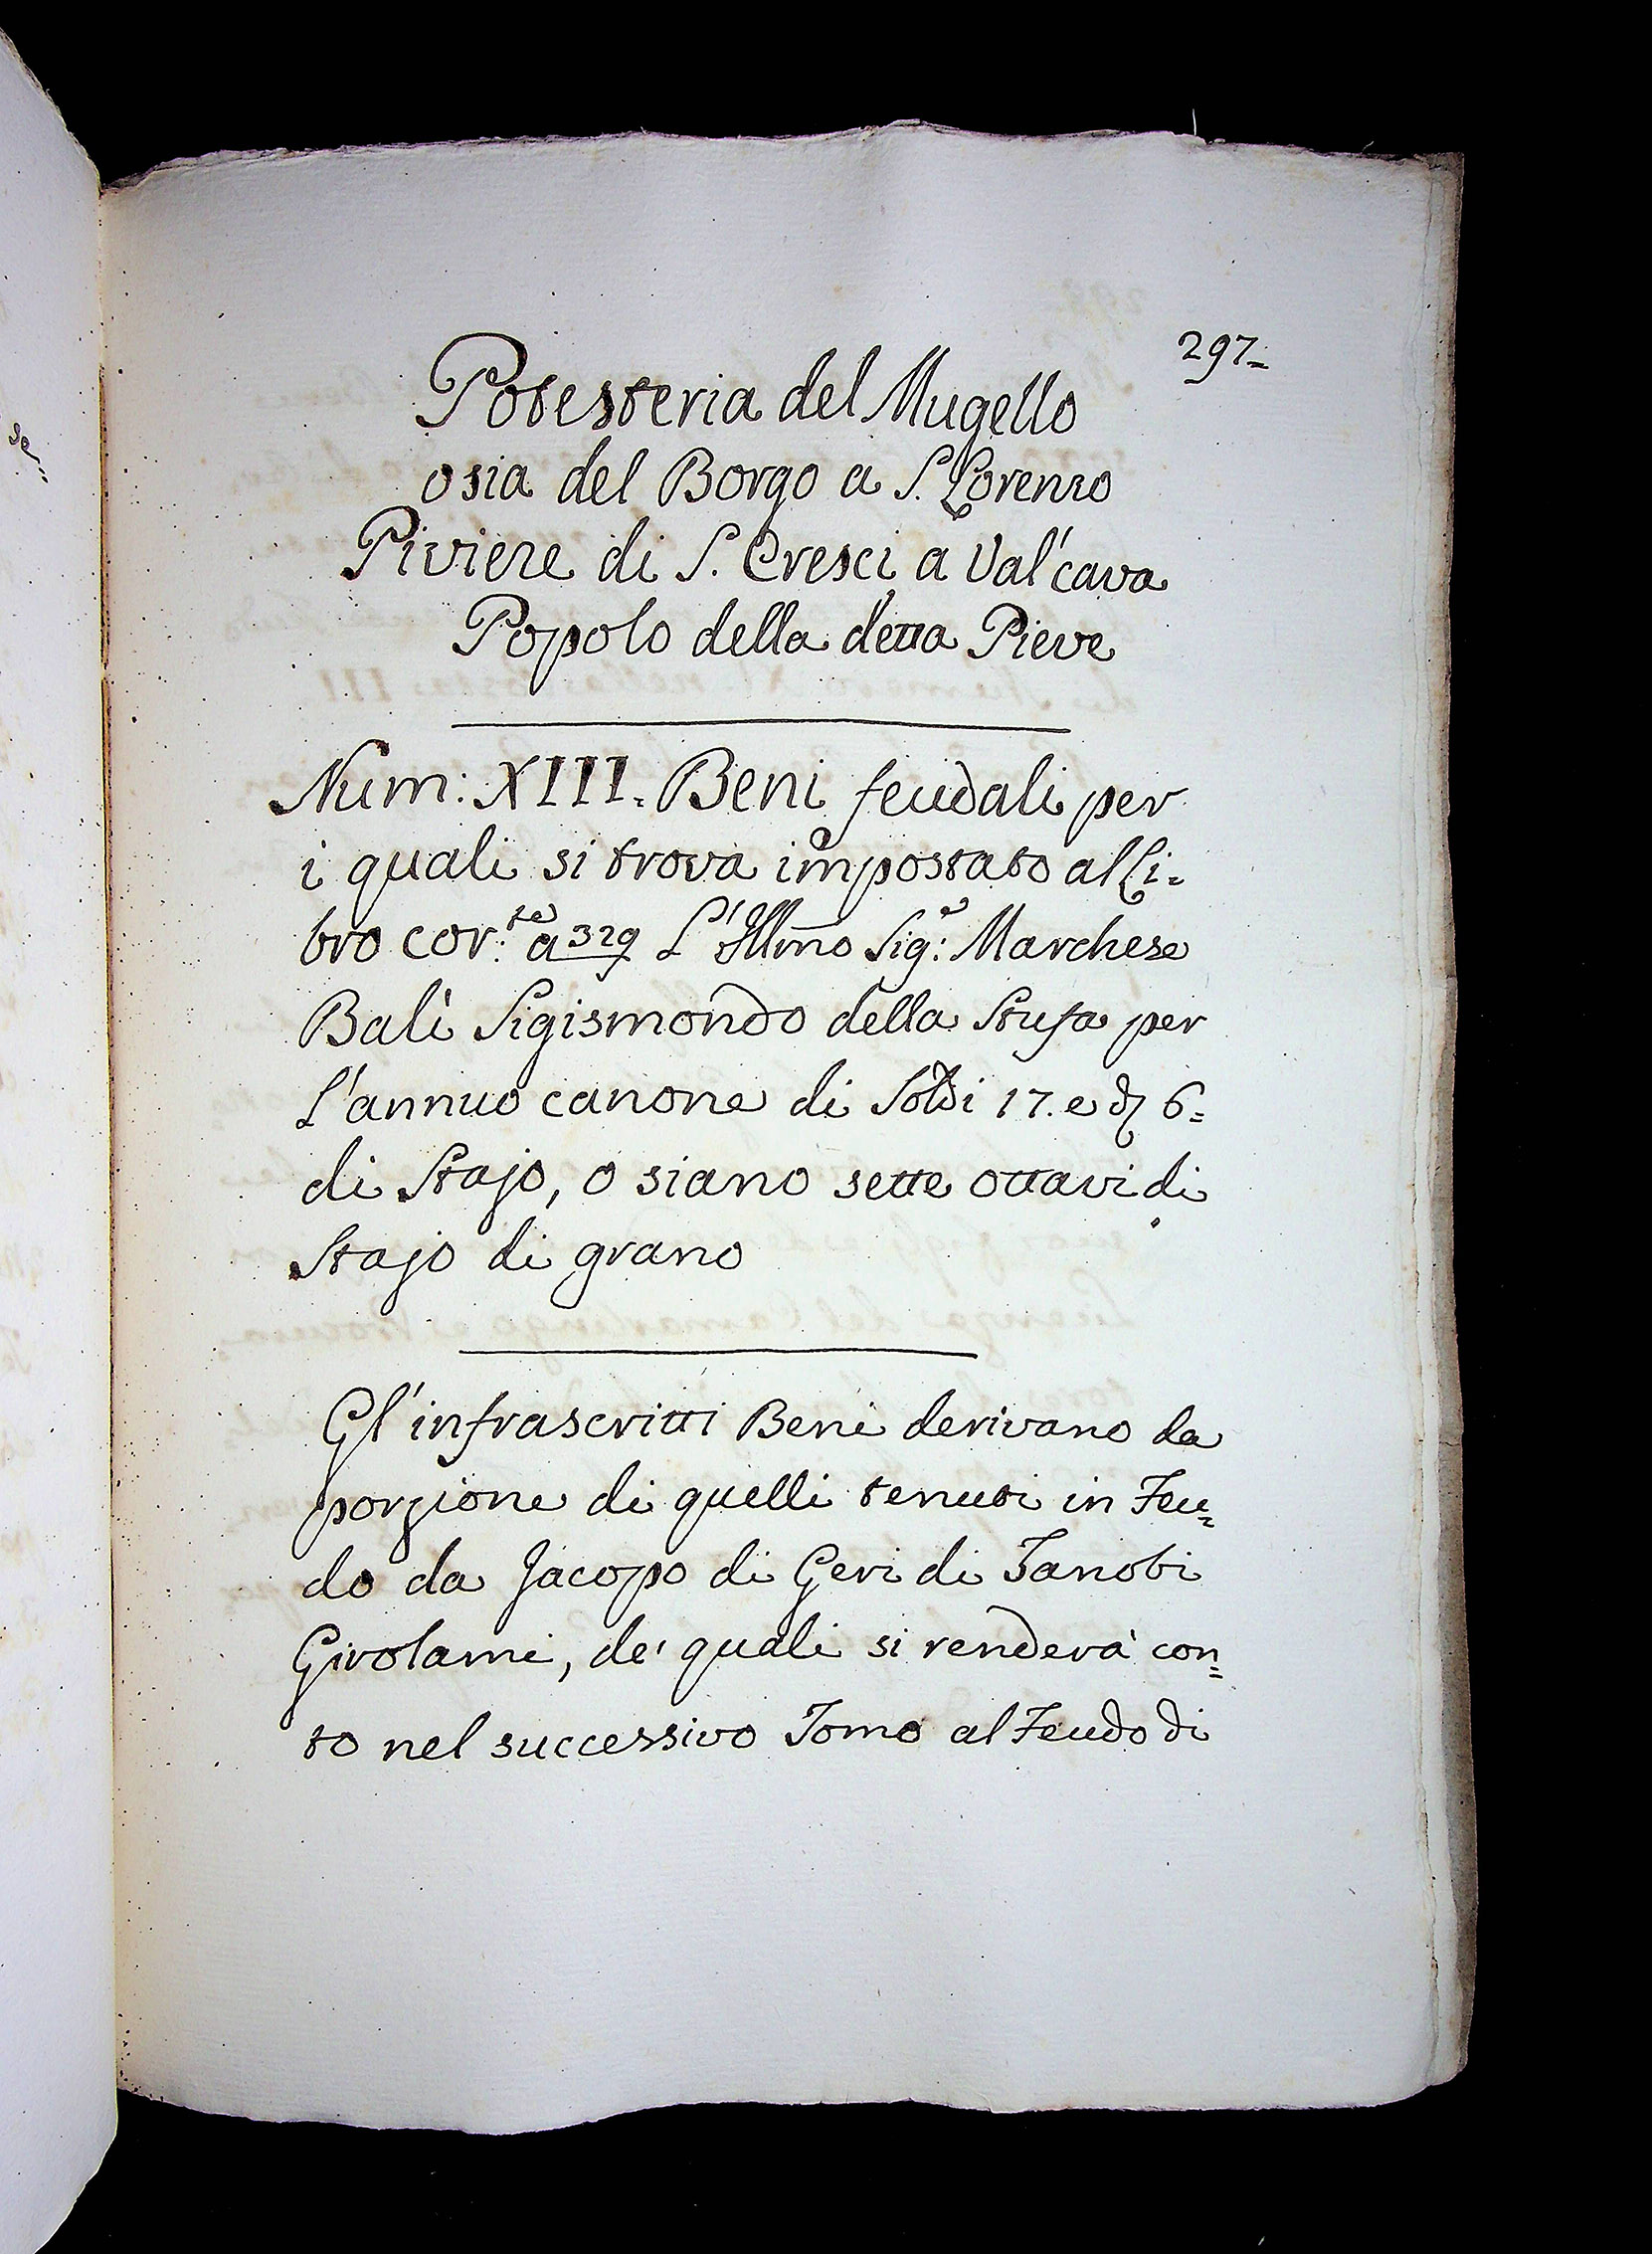 297=
Potesteria del Mugello
osia del Borgo a S. Lorenzo
Piviere di S. Cresci a Val'cava
Popolo della detta Pieve
Num: XIII. Beni feudali per
i quali si trova impostato al Li=
bro cor:te a 329 L'Illmo Sig:e Marchese
Balì Sigismondo della Stufa per
L'annuo canone di Soldi 17. e d 6=
di Stajo, o siano sette ottavi di
Stajo di grano
Gl'infrascritti Beni derivano da
porzione di quelli tenuti in Feu=
do da Jacopo di Geri di Zanobi
Girolami, de' quali si renderà con=
to nel successivo Tomo al Feudo di